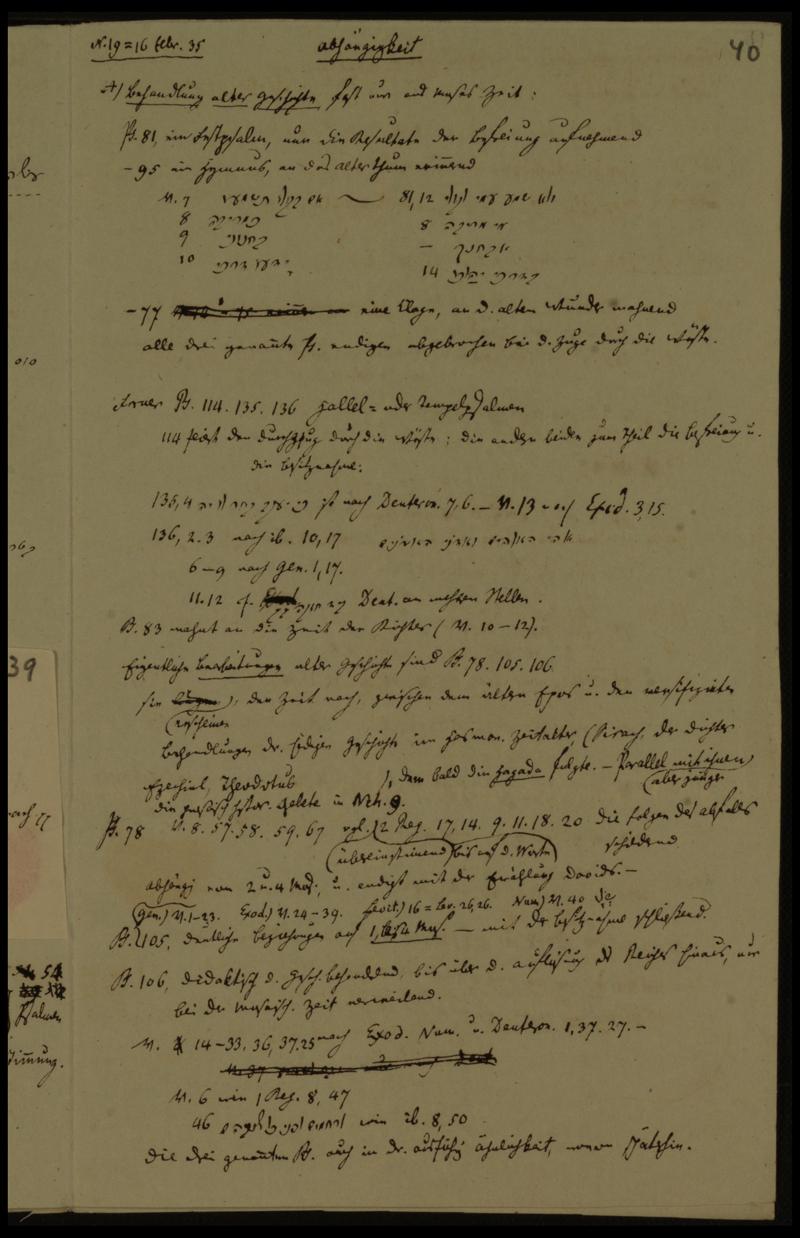 N. 19 = 16 febr. 35 Abhängigkeit 40
A) Behandlung alter Geschichte fast nur aus Moses Zeit:
Ps. 81, ein Festpsalm, nur die Resultate der Befreiung aufnehmend
– 95 ein Hymnus, an das Alterthum erinnernd
V. 7 אם בקולו תשמעו — 81,12 ולא שמע עמי לקולי
8 כמריבה 8 מי מריבה
9 בחנוני – אבחנך
10 ידעו דרכי 14 בדרכי יהלכו
– 77 eine Klage, an d. alten Wunder mahnend
alle drei genannte Ps. endigen abgebrochen bei d. Zuge durch die Wüste.
Ferner Ps. 114. 135. 136 Hallel= oder Tempelpsalmen
114 feiert den Durchzug durch die Wüste; die andern beiden zum Theil die Befreiung u.
die Besitznahme:
135,4 כי יעקב בחר לו יה ist nach Deuteron. 7,6. – V. 13 nach Exod. 3,15.
136, 2. 3 nach ib. 10,17 אלהי האלהים ואדני האדנים
6–9 nach Gen. 1,17.
11. 12 cf. יד חזקה Deut. an mehren Stellen.
Ps. 83 mahnt an die Zeit der Richter (V. 10–12).
Eigentliche Bearbeitungen alter Geschichte sind Ps. 78. 105. 106.
sie (erscheinen), der Zeit nach, zwischen dem alten Epos u. den versifizirten
Behandlungen der heiligen Geschichte im hasmon. Zeitalter (Sirach, der Dichter
Ezechiel, Theodotus), dem bald die Hagada folgte. – Parallel mit ihnen (aber jünger)
die histor. Gebete in Neh. 9.
Ps. 78 V. 8. 57. 58. 59. 67 vgl. 2 Reg. 17, 14. 9. 11. 18. 20 die Folgen des Abfalls
(übereinstimmend bis auf d. Worte) schildernd
abhängig vom 2 u. 4 Mos., u. endigt mit der Erwählung Davids. –
Gen.) V. 1–23. Exod.) V. 24–39. Levit.) 16 = Lev. 26,26. Num) V. 40
Ps. 105, deutliche Beziehungen auf 1, Mos. – mit der Besitznahme schließend.
Ps. 106, didaktisch d. Gesch. behandelnd, bis über d. Auflösung des Reiches hinaus, nur
bei der mosaisch. Zeit verweilend.
V. 14–33. 36, 37. 25 nach Exod. Num. u. Deuteron. 1,37. 27. –
V. 6 wie 1 Reg. 8, 47
46 wie ib. 8,50
die drei genannten Ps. auch in der Ähnlichkeit,
39
54
Psalmen